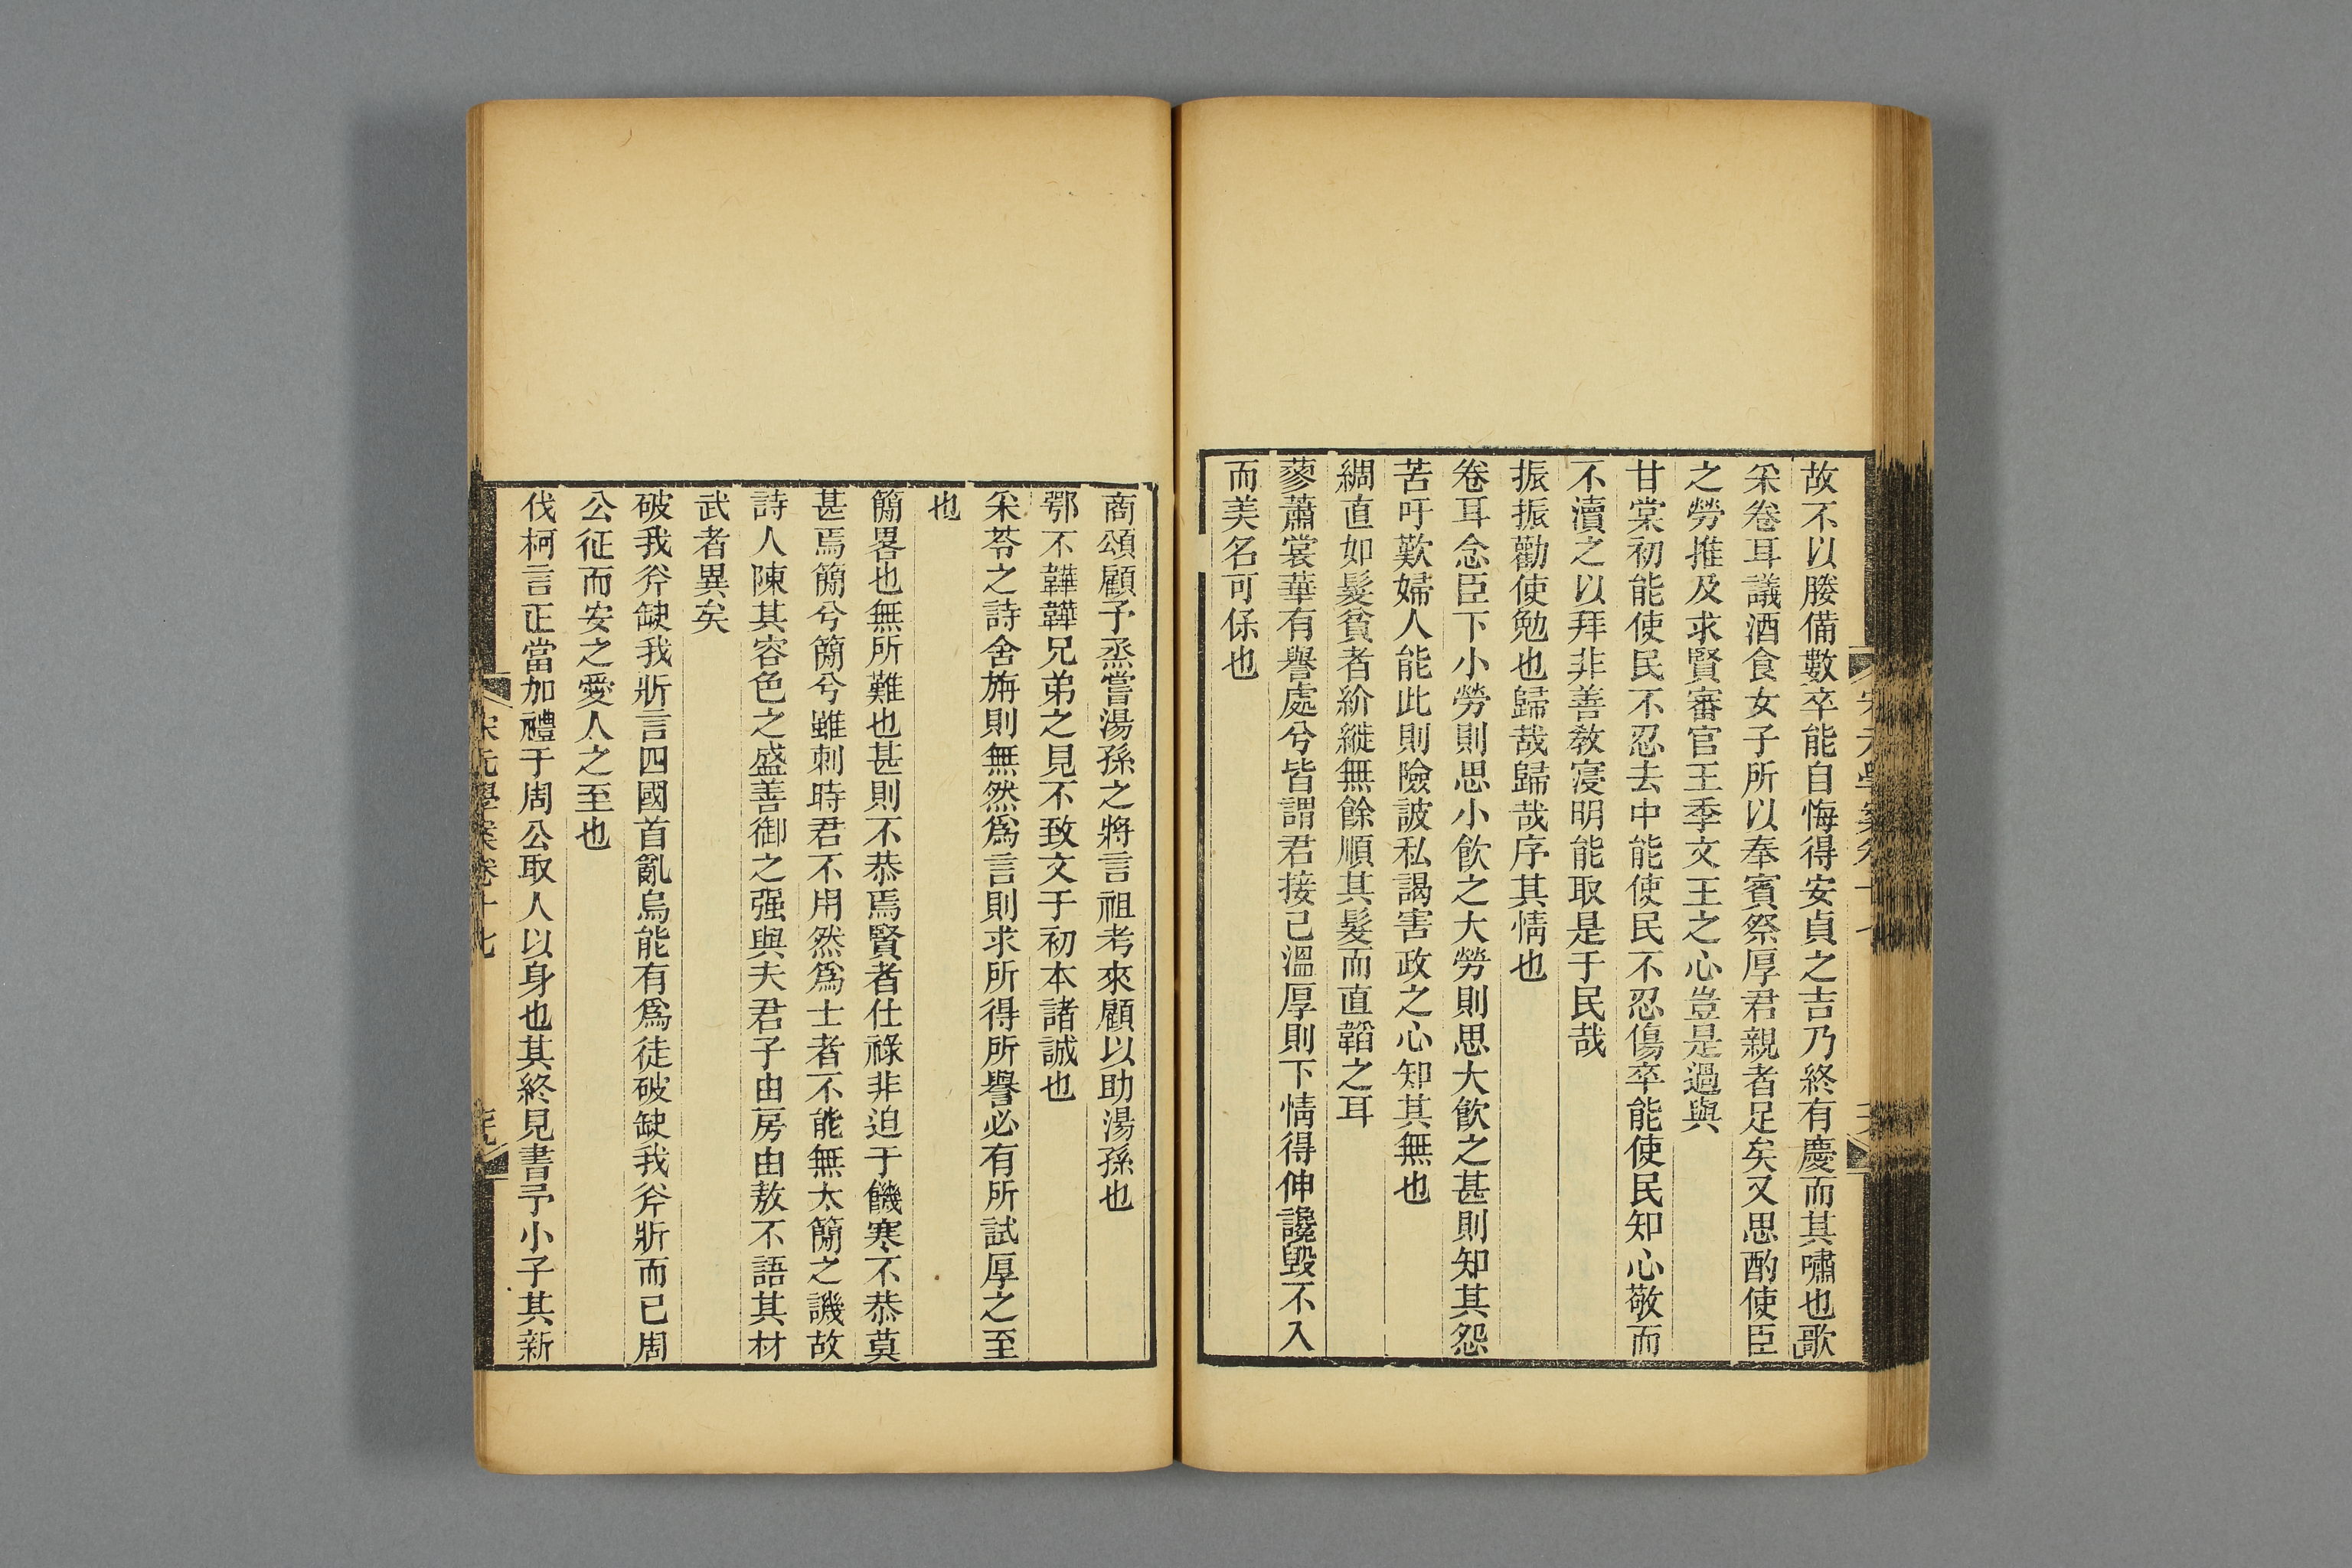 故不以媵備數卒能自悔得安貞之吉乃終有慶而其嘯也歌
采卷耳議酒食女子所以奉賓祭厚君親者足矣又思酌使臣
之勞推及求賢審官王季文王之心豈是過與
甘棠初能使民不忍去中能使民不忍傷卒能使民知心敬而
不瀆之以拜非善敎寖明能取是于民哉
振振勸使勉也歸哉歸哉序其情也
卷耳念臣下小勞則思小飮之大勞則思大飮之甚則知其怨
苦吁歎婦人能此則險詖私謁害政之心知其無也
綢直如髮貧者紒縰無餘順其髮而直韜之耳
蓼蕭裳華有譽處兮皆謂君接已溫厚則下情得伸讒毀不入
而美名可保也
商頌顧予烝嘗湯孫之將言祖考來顧以助湯孫也
鄂不韡韡兄弟之見不致文于初本諸誠也
采苓之詩舍旃則無然爲言則求所得所譽必有所試厚之至
也
簡畧也無所難也甚則不恭焉賢者仕祿非迫于饑寒不恭莫
甚焉簡兮簡兮雖刺時君不用然爲士者不能無太簡之譏故
詩人陳其容色之盛善御之强與夫君子由房由敖不語其材
武者異矣
破我斧缺我斨言四國首亂烏能有爲徒破缺我斧斨而已周
公征而安之愛人之至也
伐柯言正當加禮于周公取人以身也其終見書予小子其新
宋元學案卷十七